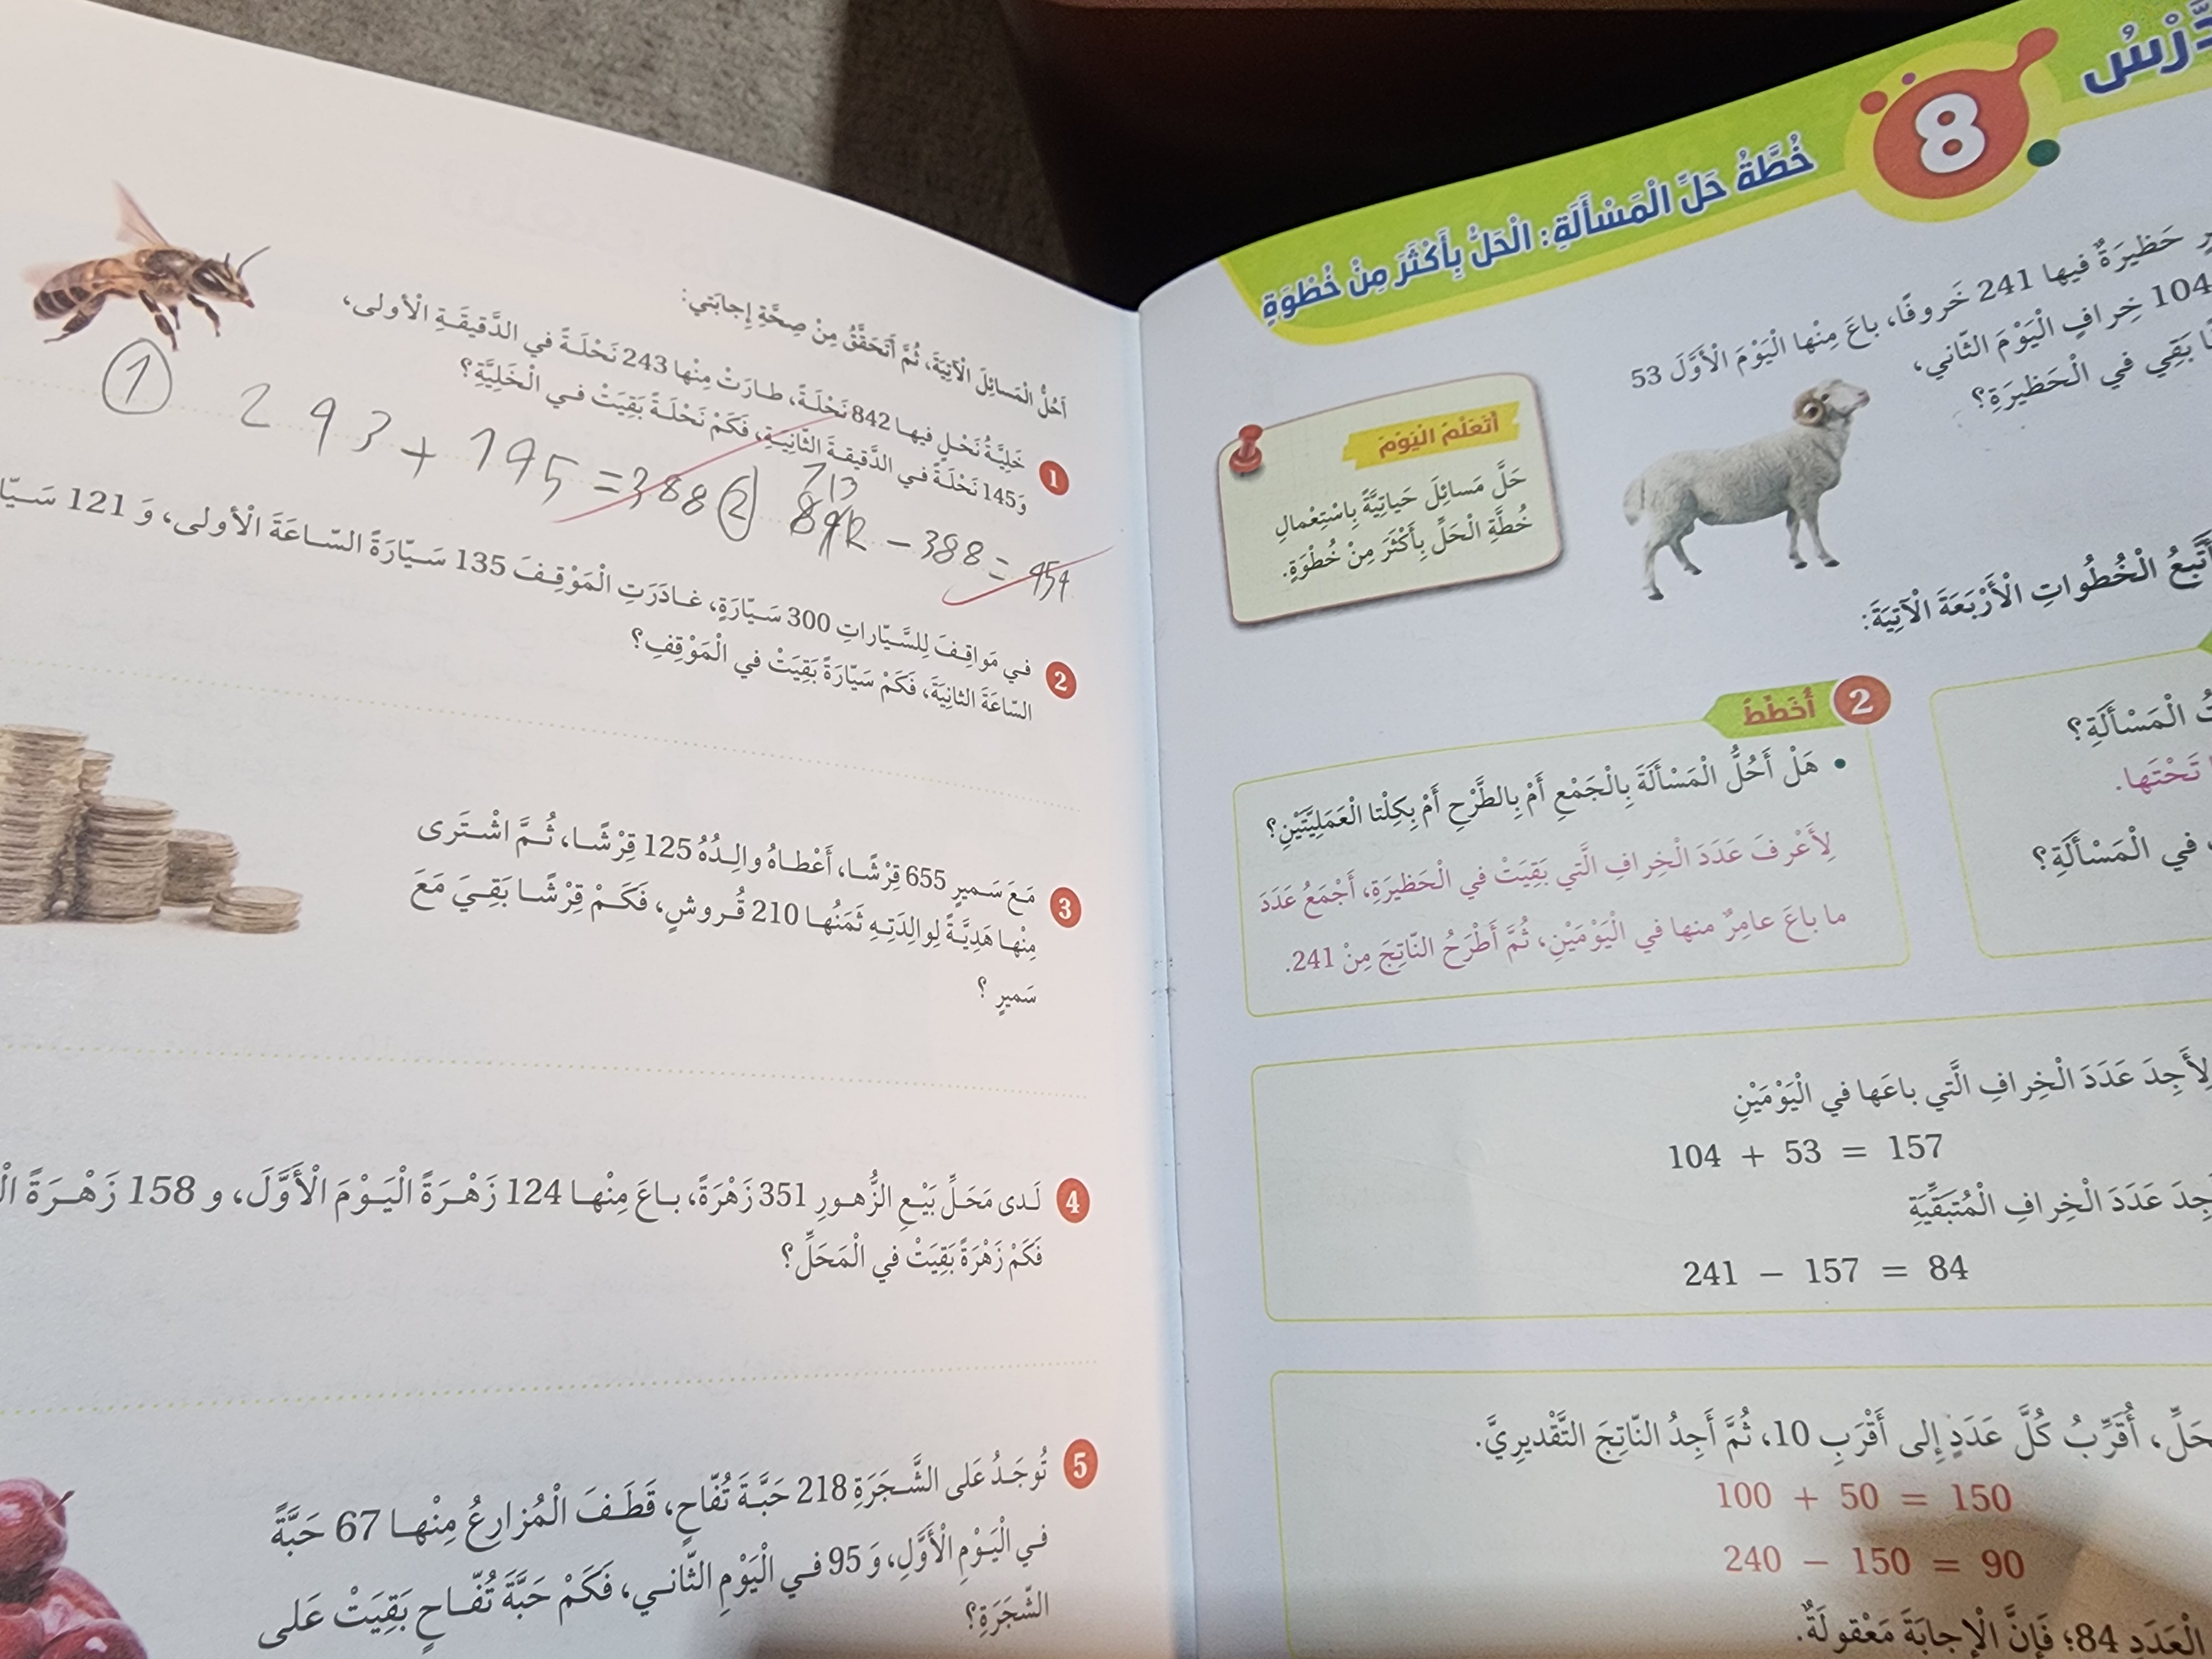 الدَّرْسُ
8
خُطَّةُ حَلِّ الْمَسْأَلَةِ: الْحَلُّ بِأَكْثَرَ مِنْ خُطْوَةٍ
حَظيرَةٌ فيها 241 خَروفًا، باعَ مِنْها الْيَوْمَ الْأَوَّلَ 53
104 خِرافٍ الْيَوْمَ الثّاني،
بَقِي في الْحَظيرَةِ؟
أَتَعَلَّمُ الْيَوْمَ
حَلَّ مَسائِلَ حَياتِيَّةً بِاسْتِعْمالِ
خُطَّةِ الْحَلِّ بِأَكْثَرَ مِنْ خُطْوَةٍ.
أَتَّبِعُ الْخُطُواتِ الْأَرْبَعَةَ الْآتِيَةَ:
الْمَسْأَلَةِ؟
تَحْتَها.
في الْمَسْأَلَةِ؟
2 أُخَطِّطُ
• هَلْ أَحُلُّ الْمَسْأَلَةَ بِالْجَمْعِ أَمْ بِالطَّرْحِ أَمْ بِكِلْتا الْعَمَلِيَّتَيْنِ؟
لِأَعْرِفَ عَدَدَ الْخِرافِ الَّتي بَقِيَتْ في الْحَظيرَةِ، أَجْمَعُ عَدَدَ
ما باعَ عامِرٌ منها في الْيَوْمَيْنِ، ثُمَّ أَطْرَحُ النّاتِجَ مِنْ 241.
لِأَجِدَ عَدَدَ الْخِرافِ الَّتي باعَها في الْيَوْمَيْنِ
104 + 53 = 157
عَدَدَ الْخِرافِ الْمُتَبَقِّيَةِ
241 − 157 = 84
أُقَرِّبُ كُلَّ عَدَدٍ إلى أَقْرَبِ 10، ثُمَّ أَجِدُ النّاتِجَ التَّقْديرِيَّ.
100 + 50 = 150
240 − 150 = 90
الْعَدَدِ 84؛ فَإِنَّ الْإِجابَةَ مَعْقولَةٌ.
أَحُلُّ الْمَسائِلَ الْآتِيَةَ، ثُمَّ أَتَحَقَّقُ مِنْ صِحَّةِ إِجابَتي:
1 خَلِيَّةُ نَحْلٍ فيها 842 نَحْلَةً، طارَتْ مِنْها 243 نَحْلَةً في الدَّقيقَةِ الْأولى،
وَ145 نَحْلَةً في الدَّقيقةِ الثّانِيَةِ، فَكَمْ نَحْلَةً بَقِيَتْ في الْخَلِيَّةِ؟
① 243 + 145 = 388 ② 842 − 388 = 454
2 في مَواقِفَ لِلسَّيّاراتِ 300 سَيّارَةٍ، غادَرَتِ الْمَوْقِفَ 135 سَيّارَةً السّاعَةَ الْأولى، وَ 121
السّاعَةَ الثانِيَةَ، فَكَمْ سَيّارَةً بَقِيَتْ في الْمَوْقِفِ؟
3 مَعَ سَميرٍ 655 قِرْشًا، أَعْطاهُ والِدُهُ 125 قِرْشًا، ثُمَّ اشْتَرى
مِنْها هَدِيَّةً لِوالِدَتِهِ ثَمَنُها 210 قُروشٍ، فَكَمْ قِرْشًا بَقِيَ مَعَ
سَميرٍ ؟
4 لَدى مَحَلِّ بَيْعِ الزُّهورِ 351 زَهْرَةً، باعَ مِنْها 124 زَهْرَةً الْيَوْمَ الْأَوَّلَ، و 158 زَهْرَةً
فَكَمْ زَهْرَةً بَقِيَتْ في الْمَحَلِّ؟
5 تُوجَدُ عَلى الشَّجَرَةِ 218 حَبَّةَ تُفّاحٍ، قَطَفَ الْمُزارِعُ مِنْها 67 حَبَّةً
في الْيَوْمِ الْأَوَّلِ، وَ 95 في الْيَوْمِ الثّاني، فَكَمْ حَبَّةَ تُفّاحٍ بَقِيَتْ عَلى
الشَّجَرَةِ؟